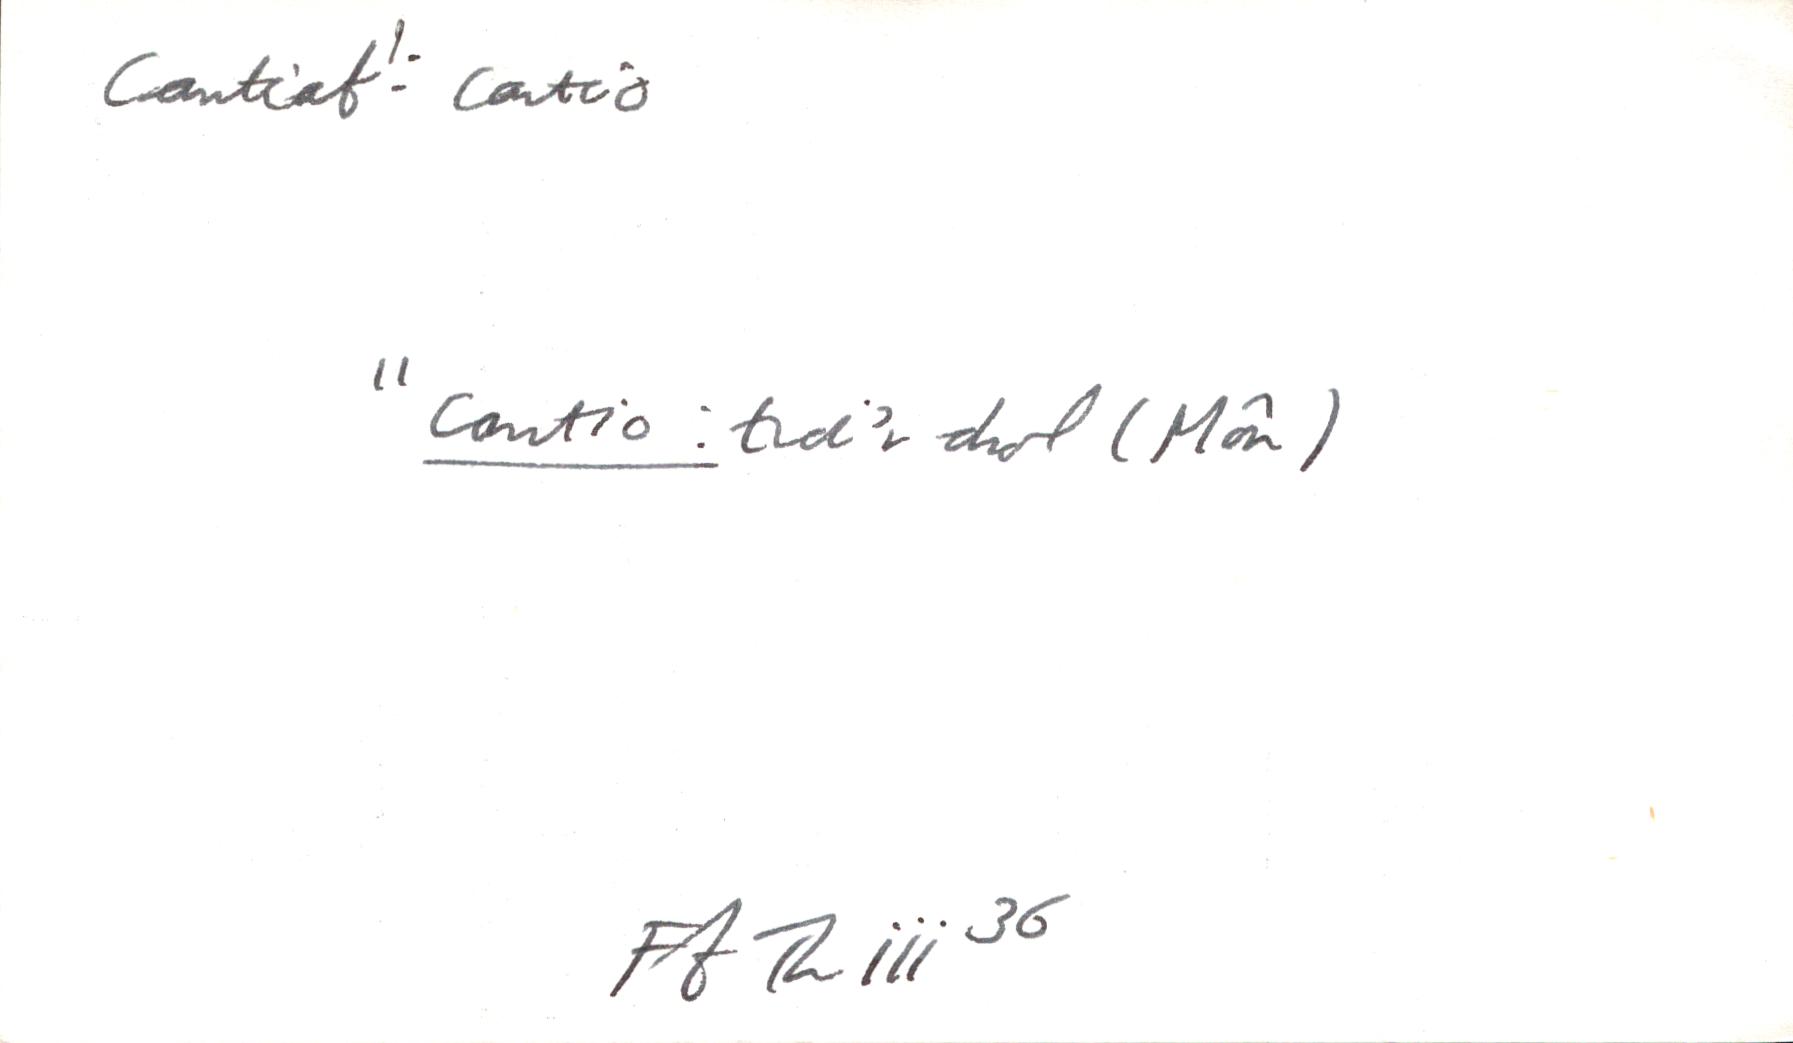 Cantiaf¹: cantio
" Cantio : troi'r drol (Môn)
Ff Th iii 36